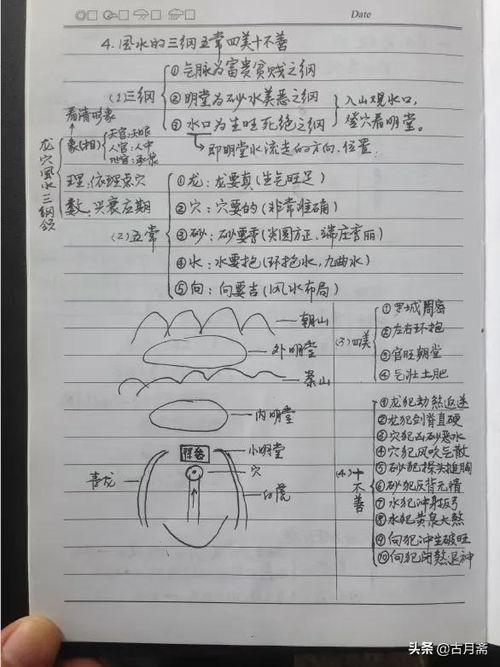 Date
4.风水的三纲五常四美十不善
(1)三纲
①气脉为富贵贫贱之纲
②明堂为砂水美恶之纲
③水口为生旺死绝之纲
即明堂水流走的方向、位置
入山观水口,
登穴看明堂。
龙穴风水三纲领
看清形象
象(相)
天官:天眼
人官:人中
理:依理点穴
数:兴衰应期
(2)五常
①龙:龙要真(生气旺足)
②穴:穴要的(非常准确)
③砂:砂要秀(尖圆方正、端庄秀丽)
④水:水要抱(环抱水,九曲水)
⑤向:向要吉(风水布局)
朝山
外明堂
案山
内明堂
小明堂
穴
青龙
白虎
(3)四美
①罗城周密
②左右环抱
③官旺朝堂
④气壮土肥
(4)十不善
①龙犯劫煞返逆
②龙犯剑脊直硬
③穴犯凶砂恶水
④穴犯风吹气散
⑤砂犯探头捶胸
⑥砂犯反背无情
⑦水犯冲射反弓
⑧水犯黄泉大煞
⑨向犯冲生破旺
⑩向犯闭煞退神
头条 @古月斋